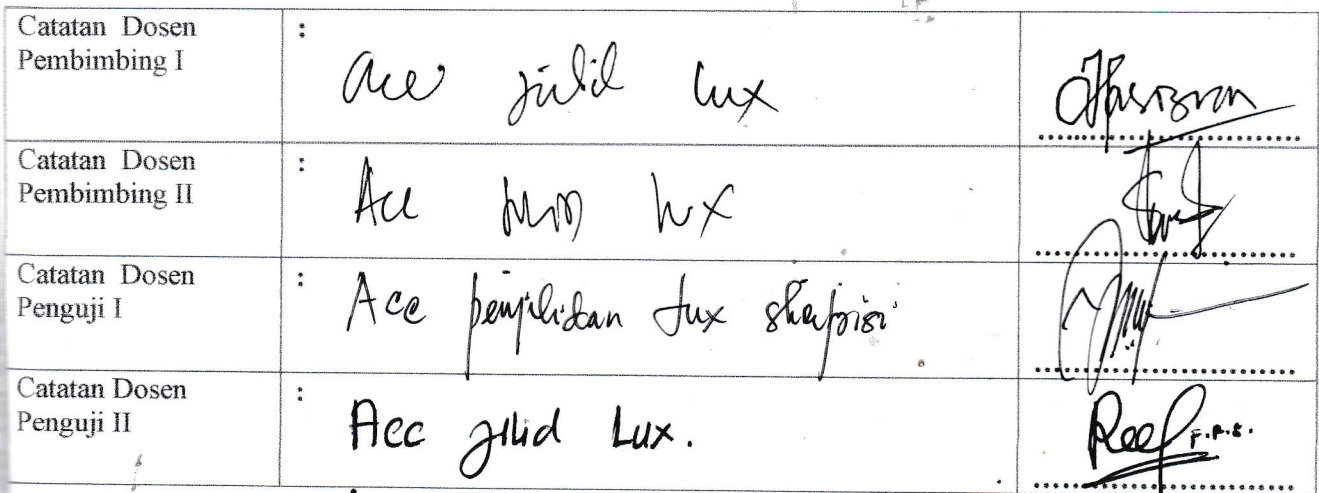 Catatan Dosen
Pembimbing I
: Acc jilid lux
Catatan Dosen
Pembimbing II
: Acc jilid lux
Catatan Dosen
Penguji I
: Acc penjilidan lux skripsi
Catatan Dosen
Penguji II
: Acc jilid Lux.
F.P.S.